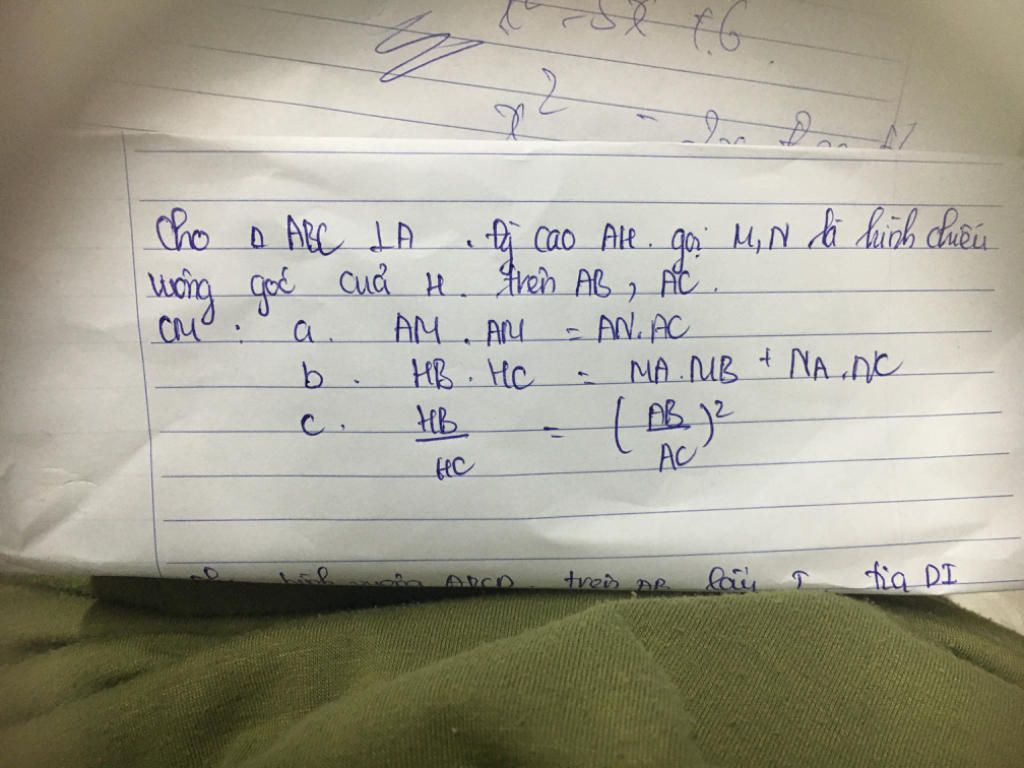 x² - 5x + 6
x² -
Cho Δ ABC ⊥ A . Đg cao AH. gọi M, N là hình chiếu
vuông góc cuả H. trên AB, AC.
CM : a. AM . AM = AN. AC
b. HB . HC = MA.MB + NA.NC
c. HB/HC = (AB/AC)²
ABCD trên AB lấy I tia DI